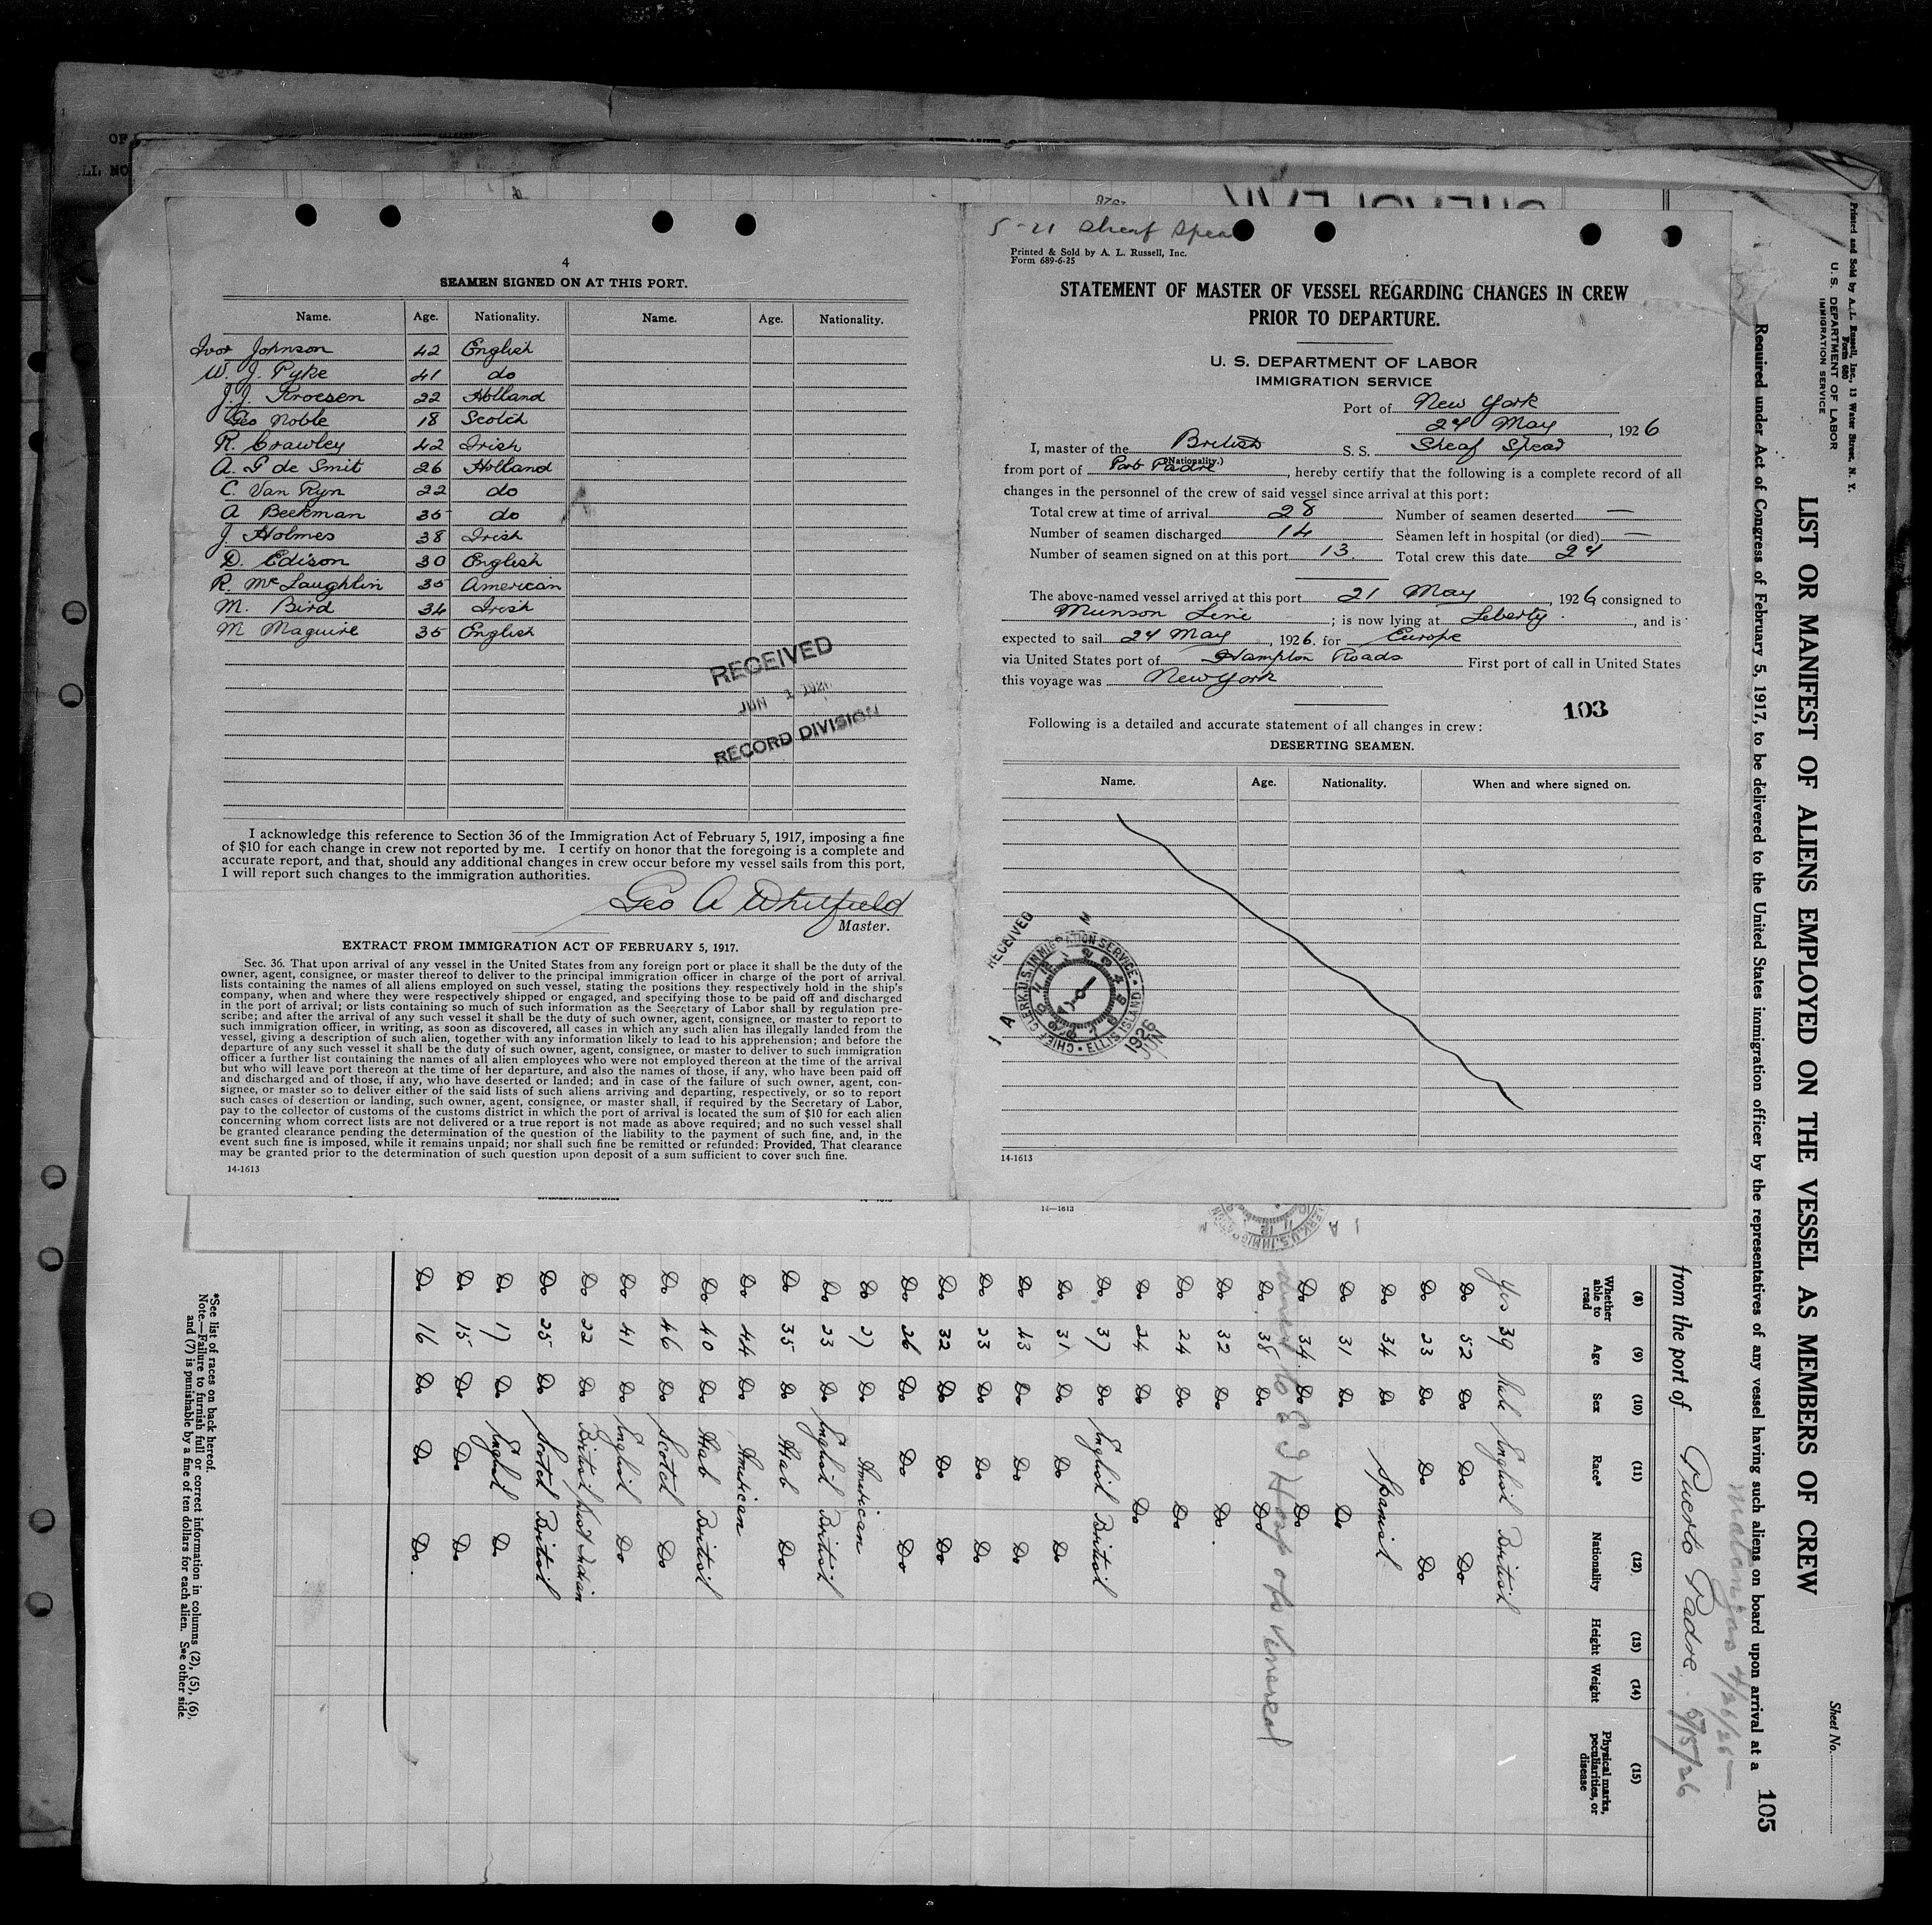 4
SEAMEN SIGNED ON AT THIS PORT.
Name. Age. Nationality. Name. Age. Nationality.
Ivor Johnson 42 English
W. J. Pyke 41 do
J. J. Kroesen 22 Holland
Geo Noble 18 Scotch
R. Crawley 42 Irish
A. G de Smit 26 Holland
C. Van Ryn 22 do
A Beekman 35 do
J. Holmes 38 Irish
D. Edison 30 English
R. McLaughlin 35 American
M. Bird 34 Irish
M Maguire 35 English
RECEIVED
JUN 1 1926
RECORD DIVISION
I acknowledge this reference to Section 36 of the Immigration Act of February 5, 1917, imposing a fine
of $10 for each change in crew not reported by me. I certify on honor that the foregoing is a complete and
accurate report, and that, should any additional changes in crew occur before my vessel sails from this port,
I will report such changes to the immigration authorities.
Geo A Whitfield
Master.
EXTRACT FROM IMMIGRATION ACT OF FEBRUARY 5, 1917.
Sec. 36. That upon arrival of any vessel in the United States from any foreign port or place it shall be the duty of the
owner, agent, consignee, or master thereof to deliver to the principal immigration officer in charge of the port of arrival
lists containing the names of all aliens employed on such vessel, stating the positions they respectively hold in the ship's
company, when and where they were respectively shipped or engaged, and specifying those to be paid off and discharged
in the port of arrival; or lists containing so much of such information as the Secretary of Labor shall by regulation pre-
scribe; and after the arrival of any such vessel it shall be the duty of such owner, agent, consignee, or master to report to
such immigration officer, in writing, as soon as discovered, all cases in which any such alien has illegally landed from the
vessel, giving a description of such alien, together with any information likely to lead to his apprehension; and before the
departure of any such vessel it shall be the duty of such owner, agent, consignee, or master to deliver to such immigration
officer a further list containing the names of all alien employees who were not employed thereon at the time of the arrival
but who will leave port thereon at the time of her departure, and also the names of those, if any, who have been paid off
and discharged and of those, if any, who have deserted or landed; and in case of the failure of such owner, agent, con-
signee, or master so to deliver either of the said lists of such aliens arriving and departing, respectively, or so to report
such cases of desertion or landing, such owner, agent, consignee, or master shall, if required by the Secretary of Labor,
pay to the collector of customs of the customs district in which the port of arrival is located the sum of $10 for each alien
concerning whom correct lists are not delivered or a true report is not made as above required; and no such vessel shall
be granted clearance pending the determination of the question of the liability to the payment of such fine, and, in the
event such fine is imposed, while it remains unpaid; nor shall such fine be remitted or refunded: Provided, That clearance
may be granted prior to the determination of such question upon deposit of a sum sufficient to cover such fine.
14-1613
5-21 Sheaf Spear
Printed & Sold by A. L. Russell, Inc.
Form 689-6-25
STATEMENT OF MASTER OF VESSEL REGARDING CHANGES IN CREW
PRIOR TO DEPARTURE.
U. S. DEPARTMENT OF LABOR
IMMIGRATION SERVICE
Port of New York
24 May, 1926
I, master of the British S. S. Sheaf Spear
(Nationality.)
from port of Port Padre, hereby certify that the following is a complete record of all
changes in the personnel of the crew of said vessel since arrival at this port:
Total crew at time of arrival 28 Number of seamen deserted —
Number of seamen discharged 14 Seamen left in hospital (or died) —
Number of seamen signed on at this port 13 Total crew this date 27
The above-named vessel arrived at this port 21 May, 1926 consigned to
Munson Line; is now lying at Liberty, and is
expected to sail 24 May, 1926. for Europe
via United States port of Hampton Roads First port of call in United States
this voyage was New York
103
Following is a detailed and accurate statement of all changes in crew:
DESERTING SEAMEN.
Name. Age. Nationality. When and where signed on.
RECEIVED
CHIEF CLERK, U.S. IMMIGRATION SERVICE • ELLIS ISLAND •
1926
JUN
1 A
14-1613
14-1613
Printed and Sold by A. L. Russell, Inc., 13 Water Street, N. Y.
Form 680
U. S. DEPARTMENT OF LABOR
IMMIGRATION SERVICE
Sheet No.
LIST OR MANIFEST OF ALIENS EMPLOYED ON THE VESSEL AS MEMBERS OF CREW
Required under Act of Congress of February 5, 1917, to be delivered to the United States immigration officer by the representatives of any vessel having such aliens on board upon arrival at a
105
Matanzas 4/26/26
from the port of Puerto Padre. 5/15/26
(8) (9) (10) (11) (12) (13) (14) (15)
Whether able to read Age Sex Race* Nationality Height Weight Physical marks, peculiarities, or disease
Yes 39 Male English British
Do 52 Do Do Do
Do 23 Do Do Do
Do 34 Do Spanish
Do 31 Do Do
Do 34 Do Do
Do 38 Do Do
Do 32 Do Do
Do 24 Do Do
Do 24 Do Do
Do 37 Do English British
Do 31 Do Do Do
Do 43 Do Do Do
Do 23 Do Do Do
Do 32 Do Do Do
Do 26 Do Do Do
Do 27 Do American
Do 23 Do English British
Do 35 Do Arab Do
Do 44 Do American
Do 40 Do Arab British
Do 46 Do Scotch Do
Do 41 Do English Do
Do 22 Do British West Indian
Do 25 Do Scotch British
Do 17 Do English Do
Do 15 Do Do Do
Do 16 Do Do Do
to E I Hosp obs Venereal
*See list of races on back hereof.
Note.—Failure to furnish full or correct information in columns (2), (5), (6),
and (7) is punishable by a fine of ten dollars for each alien. See other side.